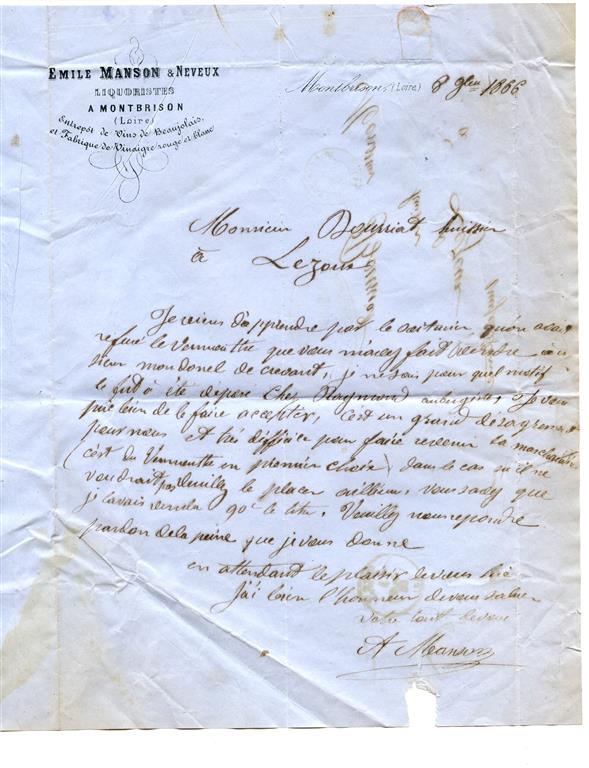 EMILE MANSON & NEVEUX
LIQUORISTES
A MONTBRISON
(Loire)
Entrepôt de Vins de Beaujolais,
et Fabrique de Vinaigre rouge et blanc
Montbrison, (Loire) 8 9bre 1866
Monsieur Bourriat huissier
à Lezoux
Je viens d'apprendre par le voiturier, qu'on avait
refusé le Vermouthe que vous m'avez fait vendre au
sieur mondonel de crevant, je ne sais pour quel motif
le fut à été déposé chez Raymond aubergiste, Je vous
prie bien de le faire accepter, c'est un grand désagrément
pour nous et très difficier pour faire revenir la marchandise
(c'est du Vermouthe en premier choix) dans le cas où il ne
voudrait pas veuillez le placer ailleurs, vous savez que
je l'avais vendu 90c le litre, Veuillez nous repondre
pardon de la peine que je vous donne
en attendant le plaisir de vous lire
j'ai bien l'honneur de vous saluer
votre tout devoué
A Manson